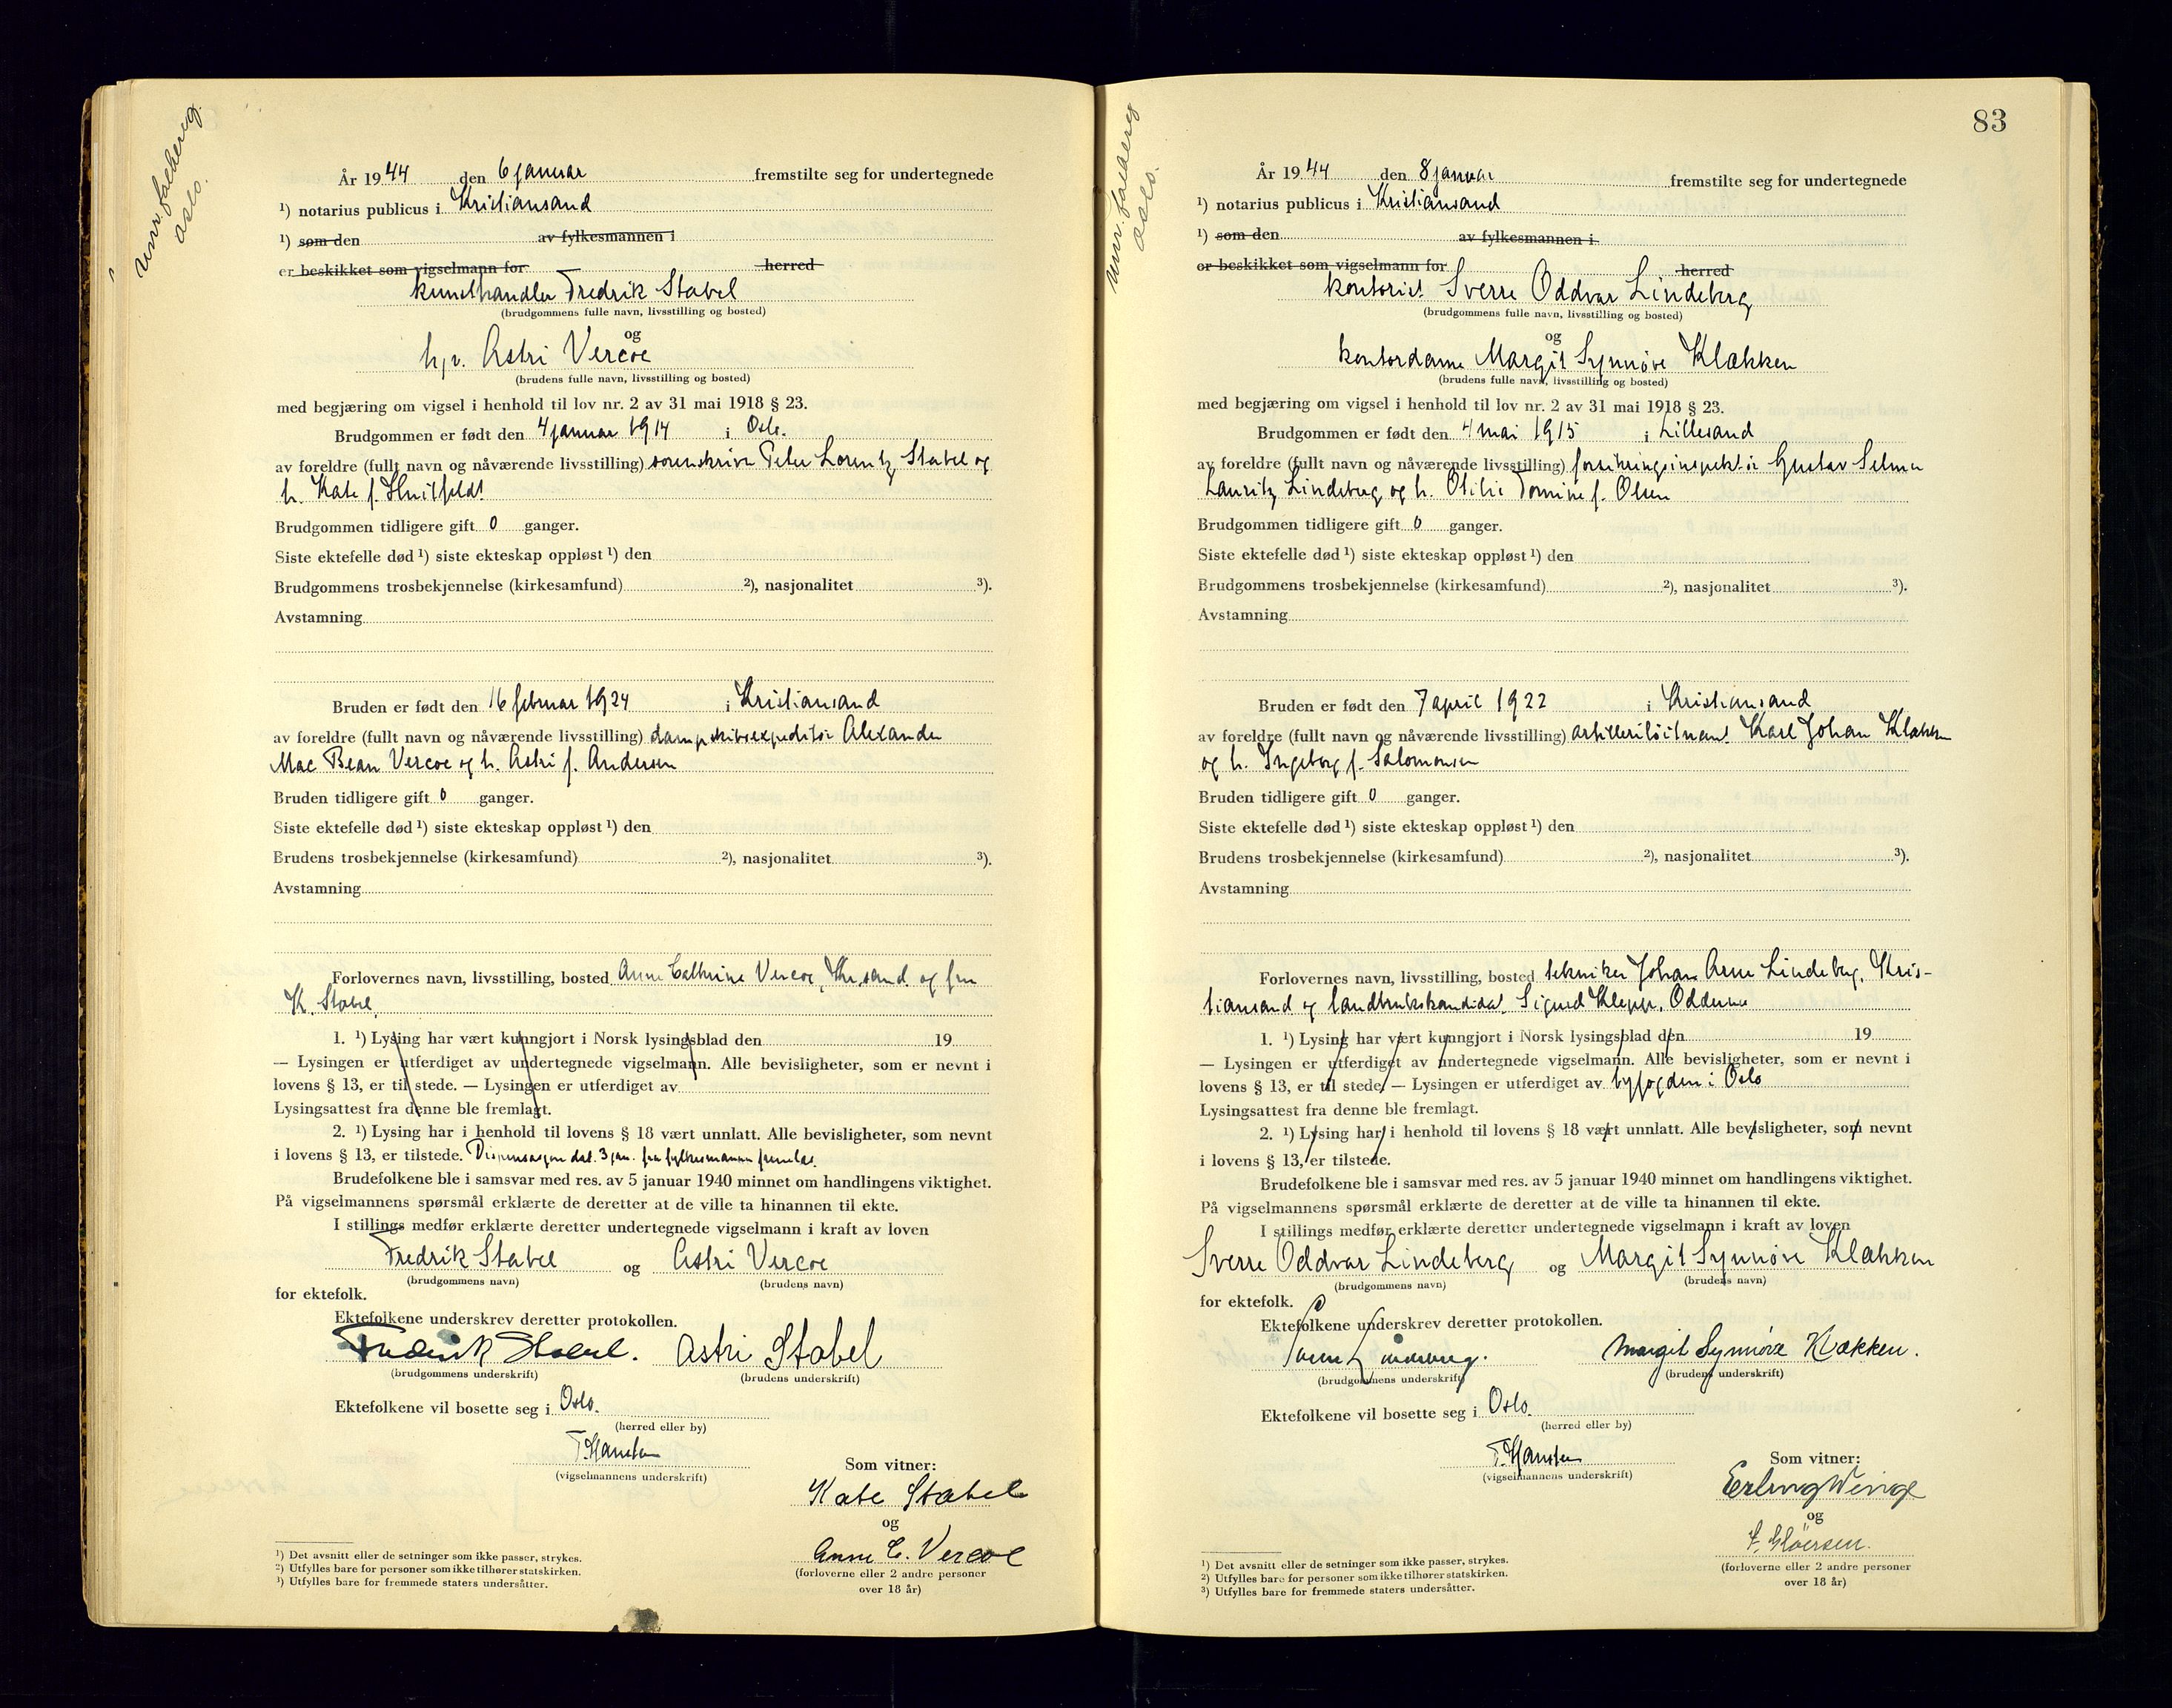 År 1944 den 6 januar fremstilte seg for undertegnede
¹) notarius publicus i Kristiansand
¹) som den av fylkesmannen i
er beskikket som vigselmann for herred
kunsthandler Fredrik Stabel
(brudgommens fulle navn, livsstilling og bosted)
og
Astri Vercoe
(brudens fulle navn, livsstilling og bosted)
med begjæring om vigsel i henhold til lov nr. 2 av 31 mai 1918 § 23.
Brudgommen er født den 4 januar 1914 i Oslo.
av foreldre (fullt navn og nåværende livsstilling) sorenskriver Peter Lorentz Stabel og
h. Kate f. Huitfeldt
Brudgommen tidligere gift 0 ganger.
Siste ektefelle død ¹) siste ekteskap oppløst ¹) den
Brudgommens trosbekjennelse (kirkesamfund) ²), nasjonalitet ³).
Avstamning
Bruden er født den 16 februar 1924 i Kristiansand
av foreldre (fullt navn og nåværende livsstilling) dampskibsexpeditør Alexander
Mac Bean Vercoe og h. Astri f. Andersen
Bruden tidligere gift 0 ganger.
Siste ektefelle død ¹) siste ekteskap oppløst ¹) den
Brudens trosbekjennelse (kirkesamfund) ²), nasjonalitet ³).
Avstamning
Forlovernes navn, livsstilling, bosted Anne Cathrine Vercoe, Kr.sand og fru
K. Stabel.
1. ¹) Lysing har vært kunngjort i Norsk lysingsblad den 19
— Lysingen er utferdiget av undertegnede vigselmann. Alle bevisligheter, som er nevnt i
lovens § 13, er til stede. — Lysingen er utferdiget av
Lysingsattest fra denne ble fremlagt.
2. ¹) Lysing har i henhold til lovens § 18 vært unnlatt. Alle bevisligheter, som nevnt
i lovens § 13, er tilstede. Dispensasjon dat. 3 jan. fra fylkesmannen fremlas.
Brudefolkene ble i samsvar med res. av 5 januar 1940 minnet om handlingens viktighet.
På vigselmannens spørsmål erklærte de deretter at de ville ta hinannen til ekte.
I stillings medfør erklærte deretter undertegnede vigselmann i kraft av loven
Fredrik Stabel og Astri Vercoe
(brudgommens navn) (brudens navn)
for ektefolk.
Ektefolkene underskrev deretter protokollen.
Fredrik Stabel. Astri Stabel
(brudgommens underskrift) (brudens underskrift)
Ektefolkene vil bosette seg i Oslo.
(herred eller by)
T. Hansten
(vigselmannens underskrift)
Som vitner:
Kate Stabel
og
Anne C. Vercoe
(forloverne eller 2 andre personer
over 18 år)
¹) Det avsnitt eller de setninger som ikke passer, strykes.
²) Utfylles bare for personer som ikke tilhører statskirken.
³) Utfylles bare for fremmede staters undersåtter.
83
År 1944 den 8 januar fremstilte seg for undertegnede
¹) notarius publicus i Kristiansand
¹) som den av fylkesmannen i
er beskikket som vigselmann for herred
kontorist Sverre Oddvar Lindeberg
(brudgommens fulle navn, livsstilling og bosted)
og
kontordame Margit Synnøve Klækken
(brudens fulle navn, livsstilling og bosted)
med begjæring om vigsel i henhold til lov nr. 2 av 31 mai 1918 § 23.
Brudgommen er født den 4 mai 1915 i Lillesand
av foreldre (fullt navn og nåværende livsstilling) forsikringsinspektør Gustav Selmer
Lauritz Lindeberg og h. Otilie Tomine f. Olsen
Brudgommen tidligere gift 0 ganger.
Siste ektefelle død ¹) siste ekteskap oppløst ¹) den
Brudgommens trosbekjennelse (kirkesamfund) ²), nasjonalitet ³).
Avstamning
Bruden er født den 7 april 1922 i Kristiansand
av foreldre (fullt navn og nåværende livsstilling) artilleriløitnant Karl Johan Klækken
og h. Ingeborg f. Salomonsen
Bruden tidligere gift 0 ganger.
Siste ektefelle død ¹) siste ekteskap oppløst ¹) den
Brudens trosbekjennelse (kirkesamfund) ²), nasjonalitet ³).
Avstamning
Forlovernes navn, livsstilling, bosted tekniker Johan Arne Lindeberg, Kris-
tiansand og landbrukskandidat Sigurd Klepp, Oddernes
1. ¹) Lysing har vært kunngjort i Norsk lysingsblad den 19
— Lysingen er utferdiget av undertegnede vigselmann. Alle bevisligheter, som er nevnt i
lovens § 13, er til stede. — Lysingen er utferdiget av byfogden i Oslo
Lysingsattest fra denne ble fremlagt.
2. ¹) Lysing har i henhold til lovens § 18 vært unnlatt. Alle bevisligheter, som nevnt
i lovens § 13, er tilstede.
Brudefolkene ble i samsvar med res. av 5 januar 1940 minnet om handlingens viktighet.
På vigselmannens spørsmål erklærte de deretter at de ville ta hinannen til ekte.
I stillings medfør erklærte deretter undertegnede vigselmann i kraft av loven
Sverre Oddvar Lindeberg og Margit Synnøve Klækken
(brudgommens navn) (brudens navn)
for ektefolk.
Ektefolkene underskrev deretter protokollen.
Sverre Lindeberg. Margit Synnøve Klækken.
(brudgommens underskrift) (brudens underskrift)
Ektefolkene vil bosette seg i Oslo.
(herred eller by)
T. Hansten
(vigselmannens underskrift)
Som vitner:
Erling Winge
og
(forloverne eller 2 andre personer
over 18 år)
¹) Det avsnitt eller de setninger som ikke passer, strykes.
²) Utfylles bare for personer som ikke tilhører statskirken.
³) Utfylles bare for fremmede staters undersåtter.